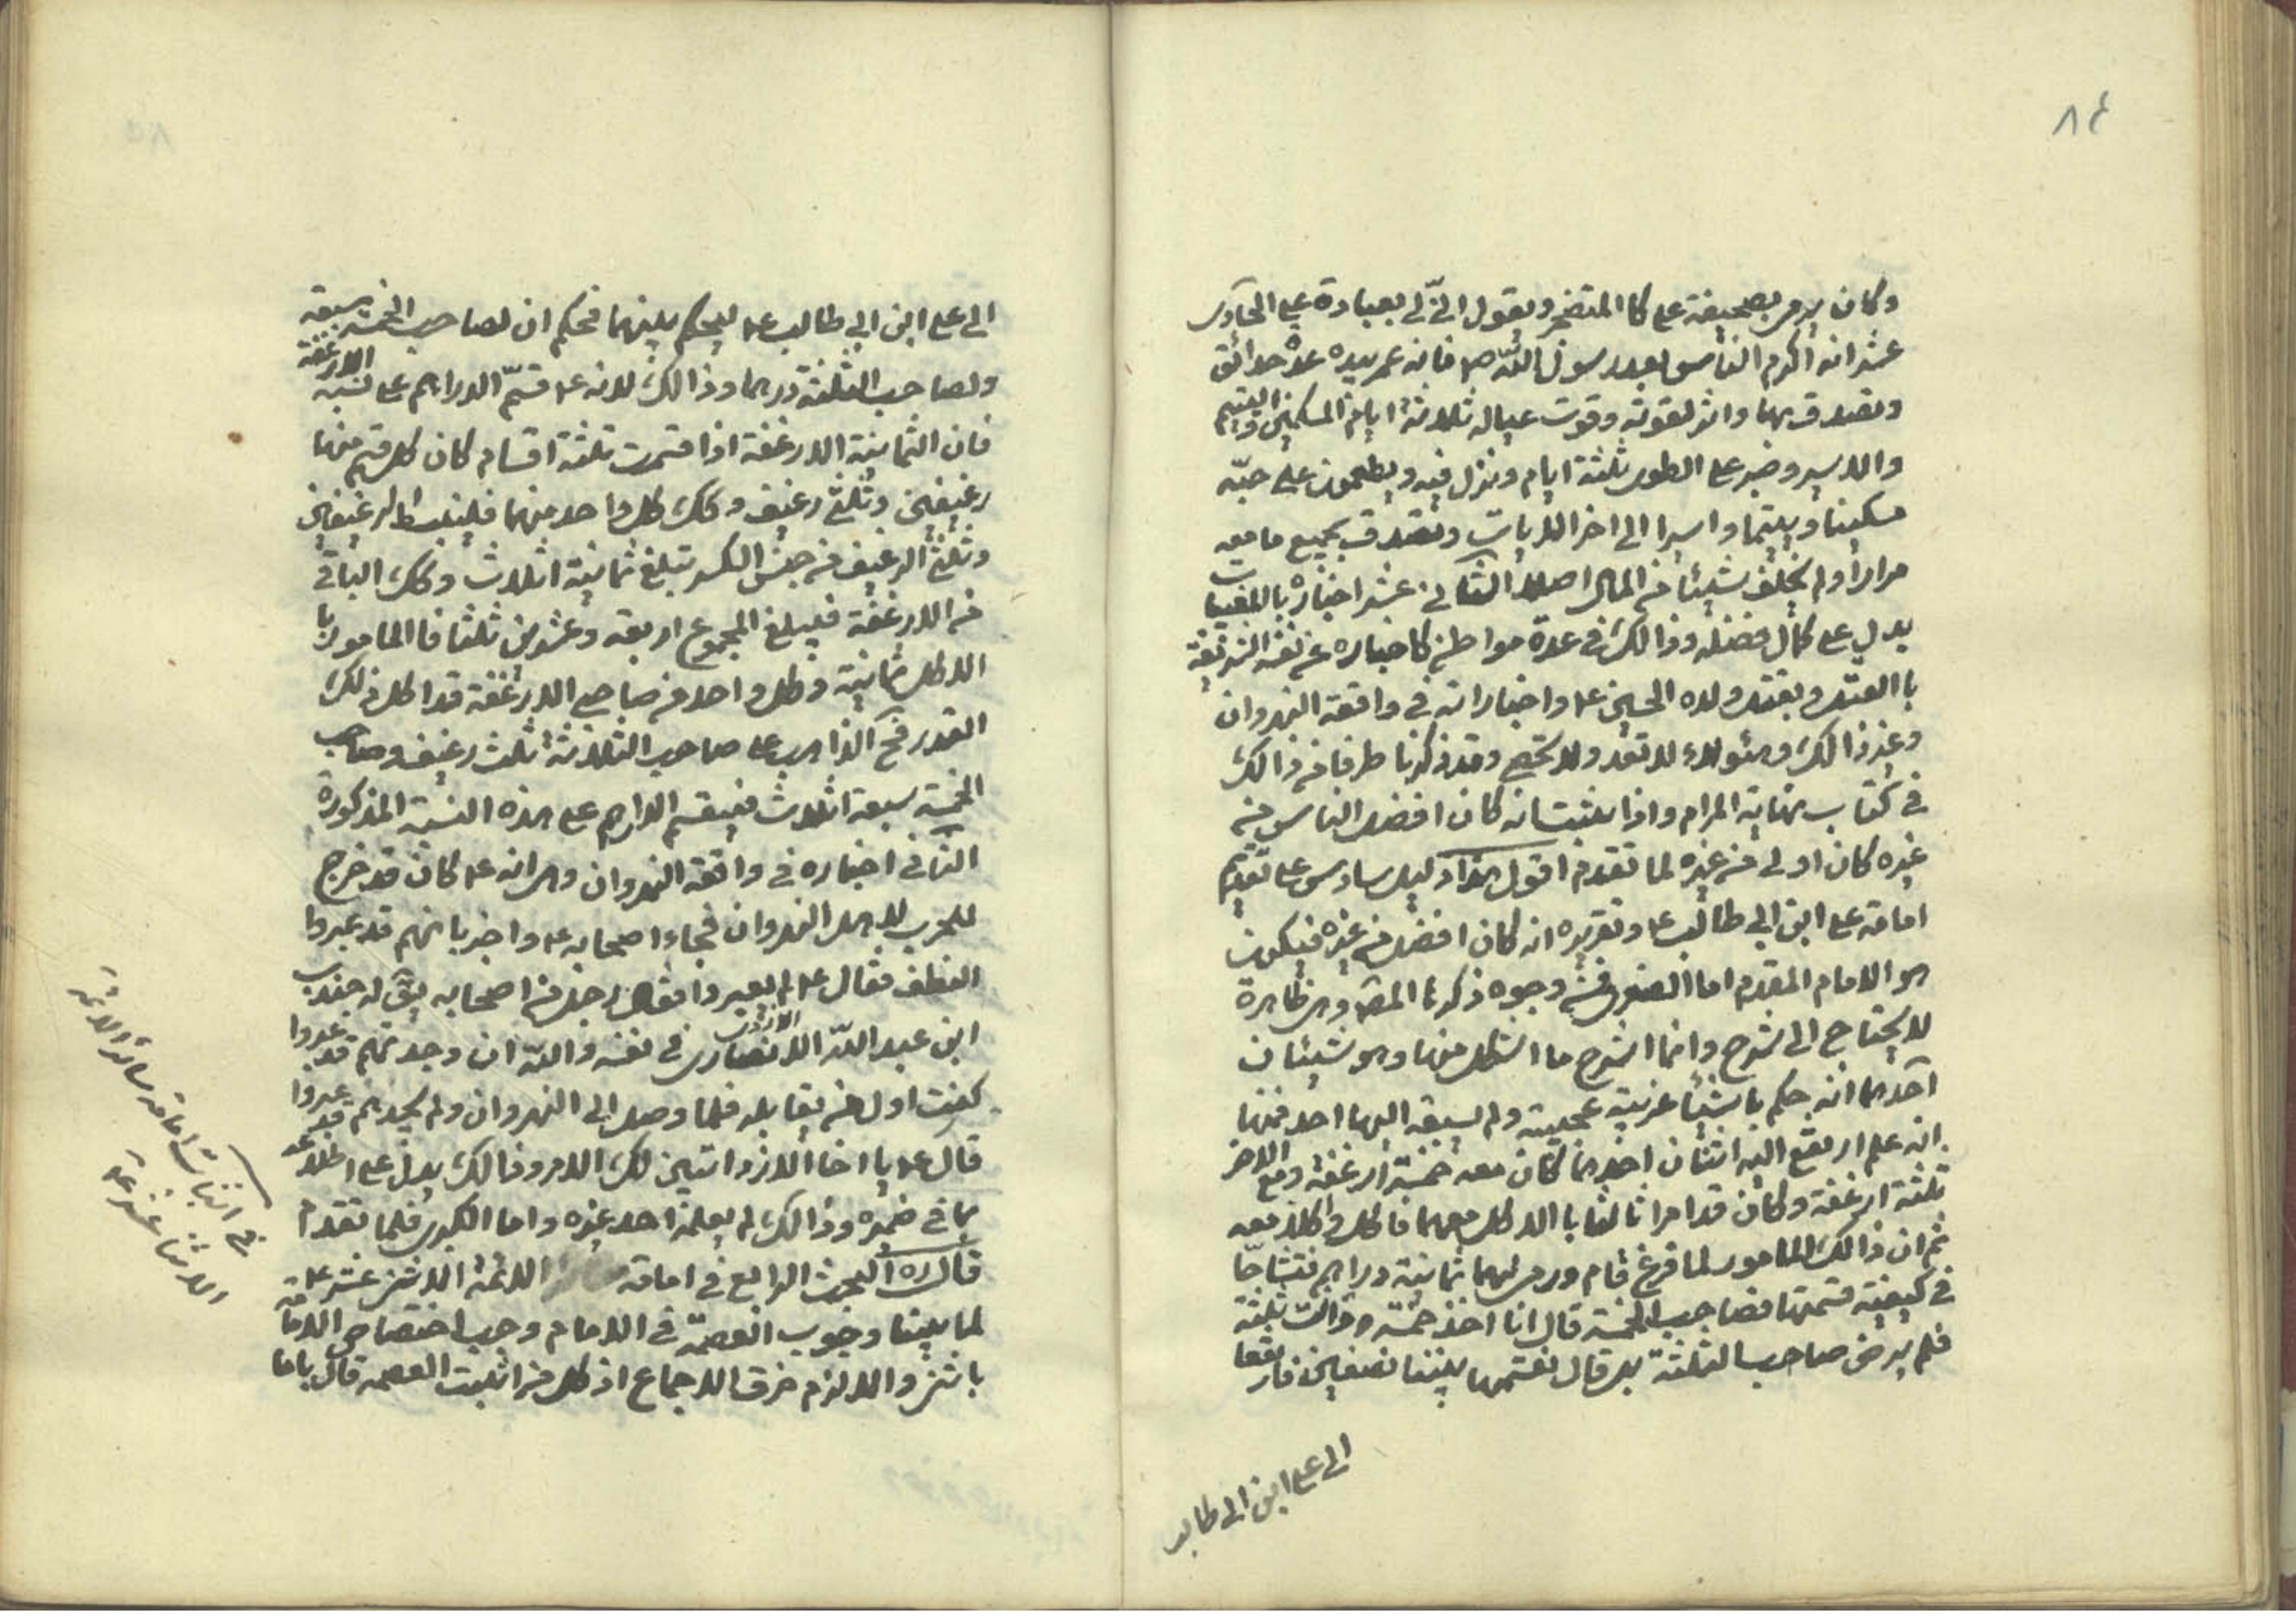 ٨٤
وكان يرمى بصحيفة على كا المتضجر ويقول انى لى بعبادة على الحادى
عشر انه اكرم الناس بعد رسول اللّه ص فانه عمر بيده عدة حدائق
وتصدق بها واثر لقوته وقوت عياله ثلاثة ايام المسكين واليتيم
والاسير وصبر على الطوى ثلثة ايام ونزل فيه ويطعمون على حبّه
مسكينا ويتيما واسيرا الى اخر الايات وتصدق بجميع ما معه
مرارا ولم يخلف شيئا من المال اصلا الثانى عشر اخباره بالمغيبات
يدل على كمال فضله وذالك فى عدة مواطن كاخباره عن نفسه الشريفة
باالقتل وبقتل ولده الحسين ع واخباراته فى واقعة النهروان
وغير ذالك وهؤلاء لا تعد ولا تحصى وقد ذكرنا طرفا من ذالك
فى كتاب نهاية المرام واذا ثبت انه كان افضل الناس من
غيره كان اولى من غيره لما تقدم اقول هذا دليل سادس على تقديم
امامة على ابن ابى طالب ع وتقريره انه كان افضل من غيره فيكون
هو الامام المقدم اما الصغرى فمن وجوه ذكرها المص وهى ظاهرة
لا يحتاج الى شرح وانما اشرح ما اشكل منها وهو شيئان
احدهما انه حكم باشياء غريبة عجيبة ولم يسبقه اليها احد فمنها
انه علم ارتفع اليه اثنان احدهما كان معه خمسة ارغفة ومع الاخر
ثلثة ارغفة وكان قد امرا ثالثا باالاكل معهما فاكل واكلا معه
ثم ان ذالك المامور لما فرغ قام ورمى لهما ثمانية دراهم فتشاحا
فى كيفية قسمتها فصاحب الخمسة قال انا اخذ خمسة وانت ثلثة
فلم يرض صاحب الثلثة بل قال نقسمها بيننا نصفين فارتفعا
الى على ابن ابى طالب
الى على ابن ابى طالب ع ليحكم بينهما فحكم ان لصاحب الخمسة سبعة
ولصاحب الثلثة درهما وذالك لانه ع قسّم الدراهم على نسبة الارغفة
فان الثمانية الارغفة اذا قسمت ثلثة اقسام كان كل قسم منها
رغيفين وثلثى رغيف وكك كل واحد منهما فليبسط الرغيفين
وثلثى الرغيف من جنس الكسر تبلغ ثمانية اثلاث وكك الباقى
من الارغفة فيبلغ المجموع اربعة وعشرين ثلثا فا المامور با
الاكل ثمانية وكل واحد من صاحبى الارغفة قد اكل ذلك
القدر فح الذاهب على صاحب الثلاثة ثلث رغيف وصاحب
الخمسة سبعة اثلاث فيقسم الدارهم على هذه النسبة المذكورة
الثانى اخباره فى واقعة النهروان وهى انه ع كان قد خرج
للحرب لاهل النهروان فجاءا اصحابه ع واخبر بانهم قد عبروا
النطف فقال ع لم يعبروا فقال رجل من اصحابه يق له جندب
ابن عبد اللّه الانصارى الازدى فى نفسه واللّه ان وجدتهم قد عبروا
كنت اول من يقابله فلما وصل الى النهروان ولم يجدهم قد عبروا
قال ع يا اخا الازد اتبين لك الامر وذالك يدل على اطلاعه
بما فى ضميره وذالك لم يعلمه احد غيره واما الكبرى فلما تقدم
قال ره البحث الرابع فى امامة الائمة الاثنى عشر ع
لما بينا وجوب العصمة فى الامام وجب اختصاص الامامة
باثنى والا لزم خرق الاجماع اذ كل من اثبت العصمه قال باما
فى اثبات امامه سائر الائمة
الاثنا عشر ع